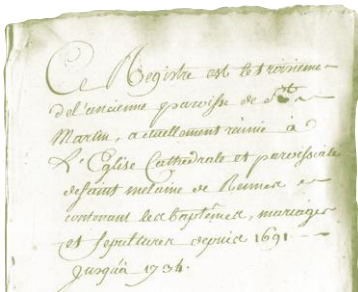 Ce Registre est le troisieme
de l'ancienne paroisse de St
Martin, actuellement réunie à
L'Eglise Cathedrale et paroissiale
de saint melaine de Rennes
contenant les baptêmes, mariages
et sepultures depuis 1691
jusqu'à 1734.